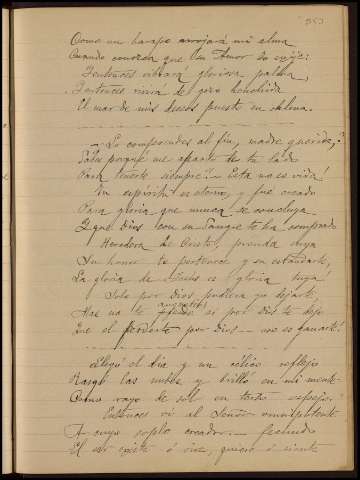 353
Como un harapo arrojará mi alma
Cuando conozca que su Amor lo exije:
Y entonces vibrará gloriosa palma,
Y entonces vivirá de gozo henchida
El mar de mis deseos puesto en calma.
—¿Lo comprendes al fin, madre querida,?
¿Sabes porque me aparto de tu lado
Para suerte siempre?— Esta no es vida!
Tu espíritu es eterno, y fue creado
Para gloria que nunca se concluya
Y que Dios con su sangre te ha comprado
Heredera de Cristo, prenda suya
Su honor te pertenece y su estandarte,
La gloria de Jesús es gloria tuya!
Solo por Dios pudiera yo dejarte,
Mas no te angusties, es por Dios te dejo
Que el perderte por Dios — no es ganarte!
Llegó el día y un célico reflejo
Rasgó las nubes y brilló en mi mente
Como rayo de sol en terso espejo.
Entonces vi al Señor omnipotente
A cuyo soplo creador — fecundo
El ser existe ó vive, quiere ó siente